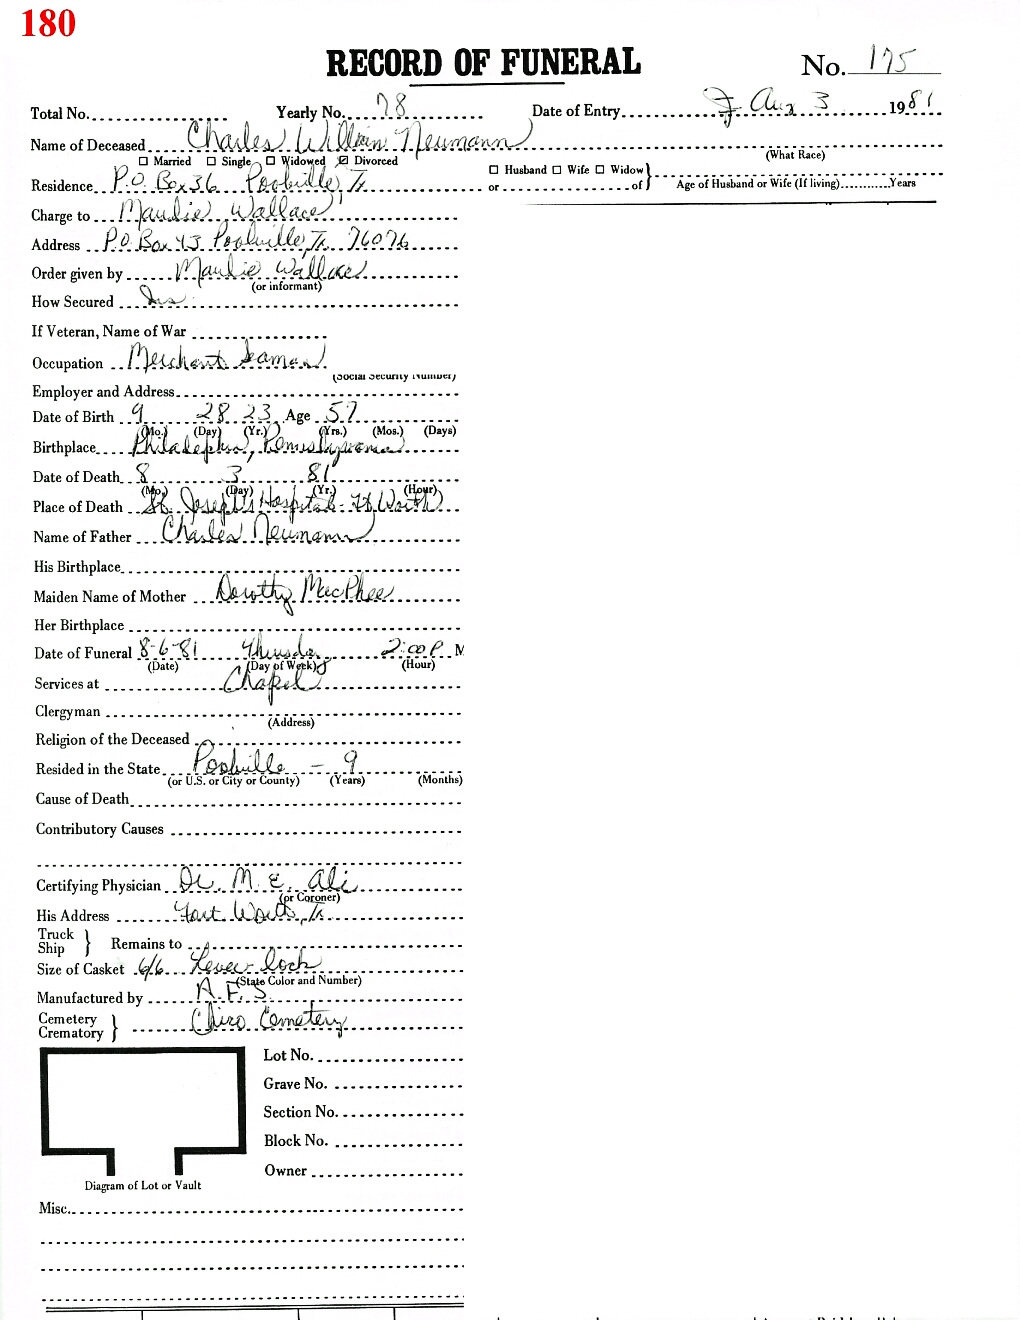 180
RECORD OF FUNERAL No. 175
Total No. Yearly No. 78 Date of Entry Aug 3 1981
Name of Deceased Charles William Neumann
(What Race)
☐ Married ☐ Single ☐ Widowed ☑ Divorced
☐ Husband ☐ Wife ☐ Widow
Residence P.O. Box 36 Poolville Tx or of Age of Husband or Wife (If living) Years
Charge to Maudie Wallace
Address P.O. Box 43 Poolville, Tx 76076
Order given by Maudie Wallace
(or informant)
How Secured Ins
If Veteran, Name of War
Occupation Merchant Seaman
(Social Security Number)
Employer and Address
Date of Birth 9 28 23 Age 57
(Mo.) (Day) (Yr.) (Yrs.) (Mos.) (Days)
Birthplace Philadelphia, Pennsylvania
Date of Death 8 3 81
(Mo.) (Day) (Yr.) (Hour)
Place of Death St. Joseph's Hospital - Ft Worth
Name of Father Charles Neumann
His Birthplace
Maiden Name of Mother Dorothy MacPhee
Her Birthplace
Date of Funeral 8-6-81 Thursday 2:00 P. M
(Date) (Day of Week) (Hour)
Services at Chapel
Clergyman
(Address)
Religion of the Deceased
Resided in the State Poolville - 9
(or U.S. or City or County) (Years) (Months)
Cause of Death
Contributory Causes
Certifying Physician Dr. M. E. Ali
(or Coroner)
His Address Fort Worth, Tx
Truck
Ship } Remains to
Size of Casket 6/6 Lever lock
(State Color and Number)
Manufactured by A.F.S.
Cemetery
Crematory } Chico Cemetery
Lot No.
Grave No.
Section No.
Block No.
Owner
Diagram of Lot or Vault
Misc.